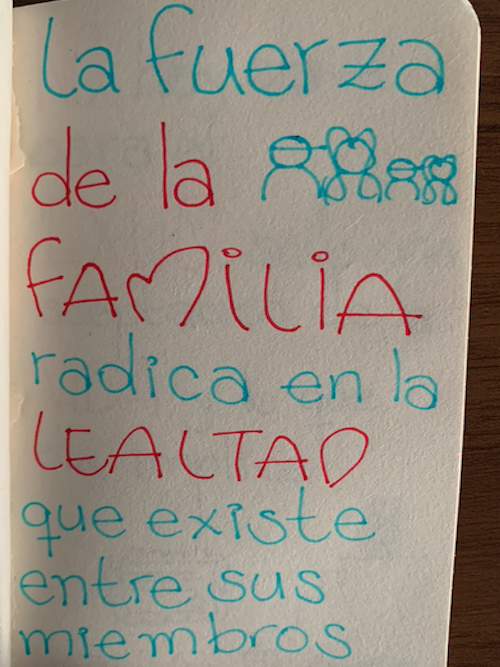 la fuerza
de la
fAMiLiA
radica en la
LEALTAD
que existe
entre sus
miembros